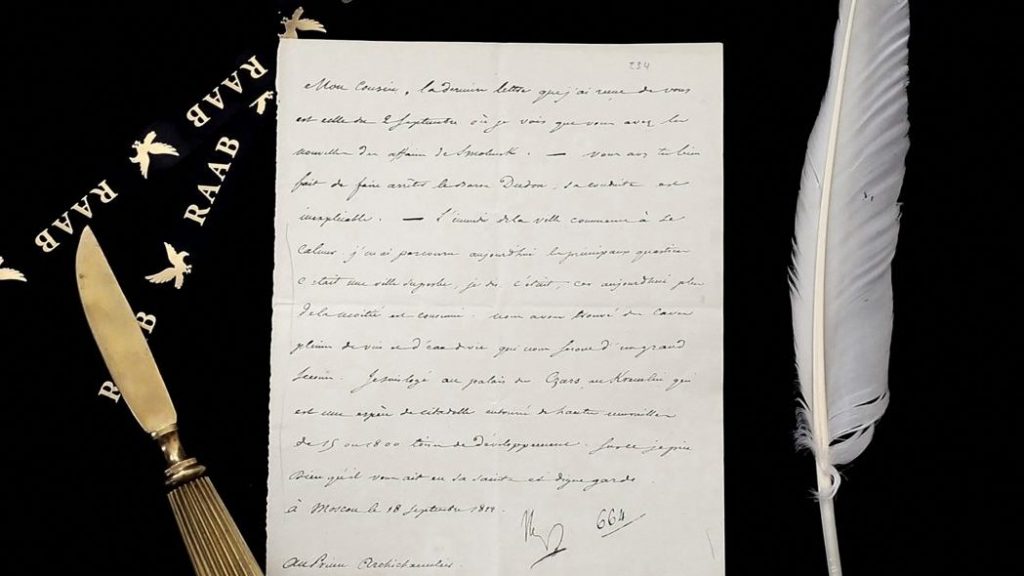 234
Mon Cousin, la dernière lettre que j'ai reçue de vous
est celle du 2 Septembre où je vois que vous avez les
nouvelles des affaires de Smolensk. — vous avez très bien
fait de faire arrêter le Baron Dudon, sa conduite est
inexplicable. — L'incendie de la ville commence à se
calmer j'en ai parcouru aujourd'hui les principaux quartiers
c'était une ville superbe, je dis, c'était, car aujourd'hui plus
de la moitié est consumée. nous avons trouvé des caves
pleines de vin et d'eau de vie qui nous seront d'un grand
secours. Je suis logé au palais des Czars au Kremlin qui
est une espèce de citadelle entourée de hautes murailles
de 15 ou 1800 toises de développement. Sur ce je prie
Dieu qu'il vous ait en sa sainte et digne garde
à Moscou le 18 Septembre 1812.
Np 664
Au Prince Archichancelier.
RAAB
RAAB
RAAB